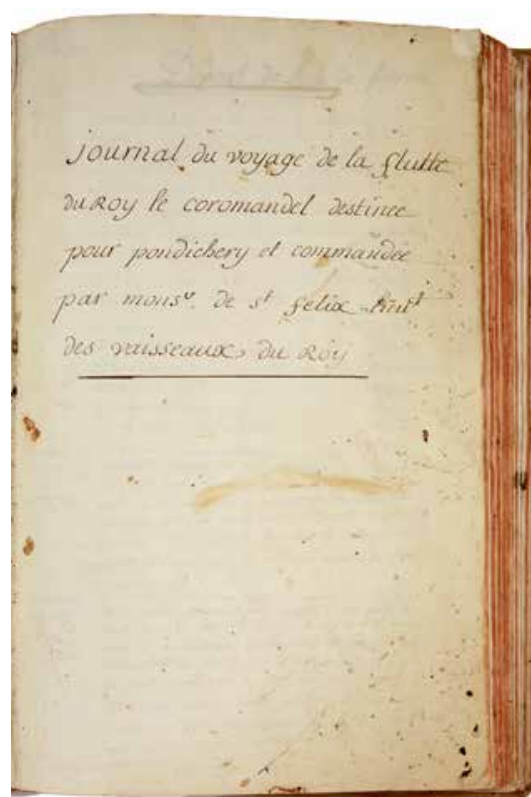 journal du voyage de la flutte
du Roy le coromandel destinee
pour pondichery et commandée
par monsr. de st felix Lieutt
des vaisseaux du Roy